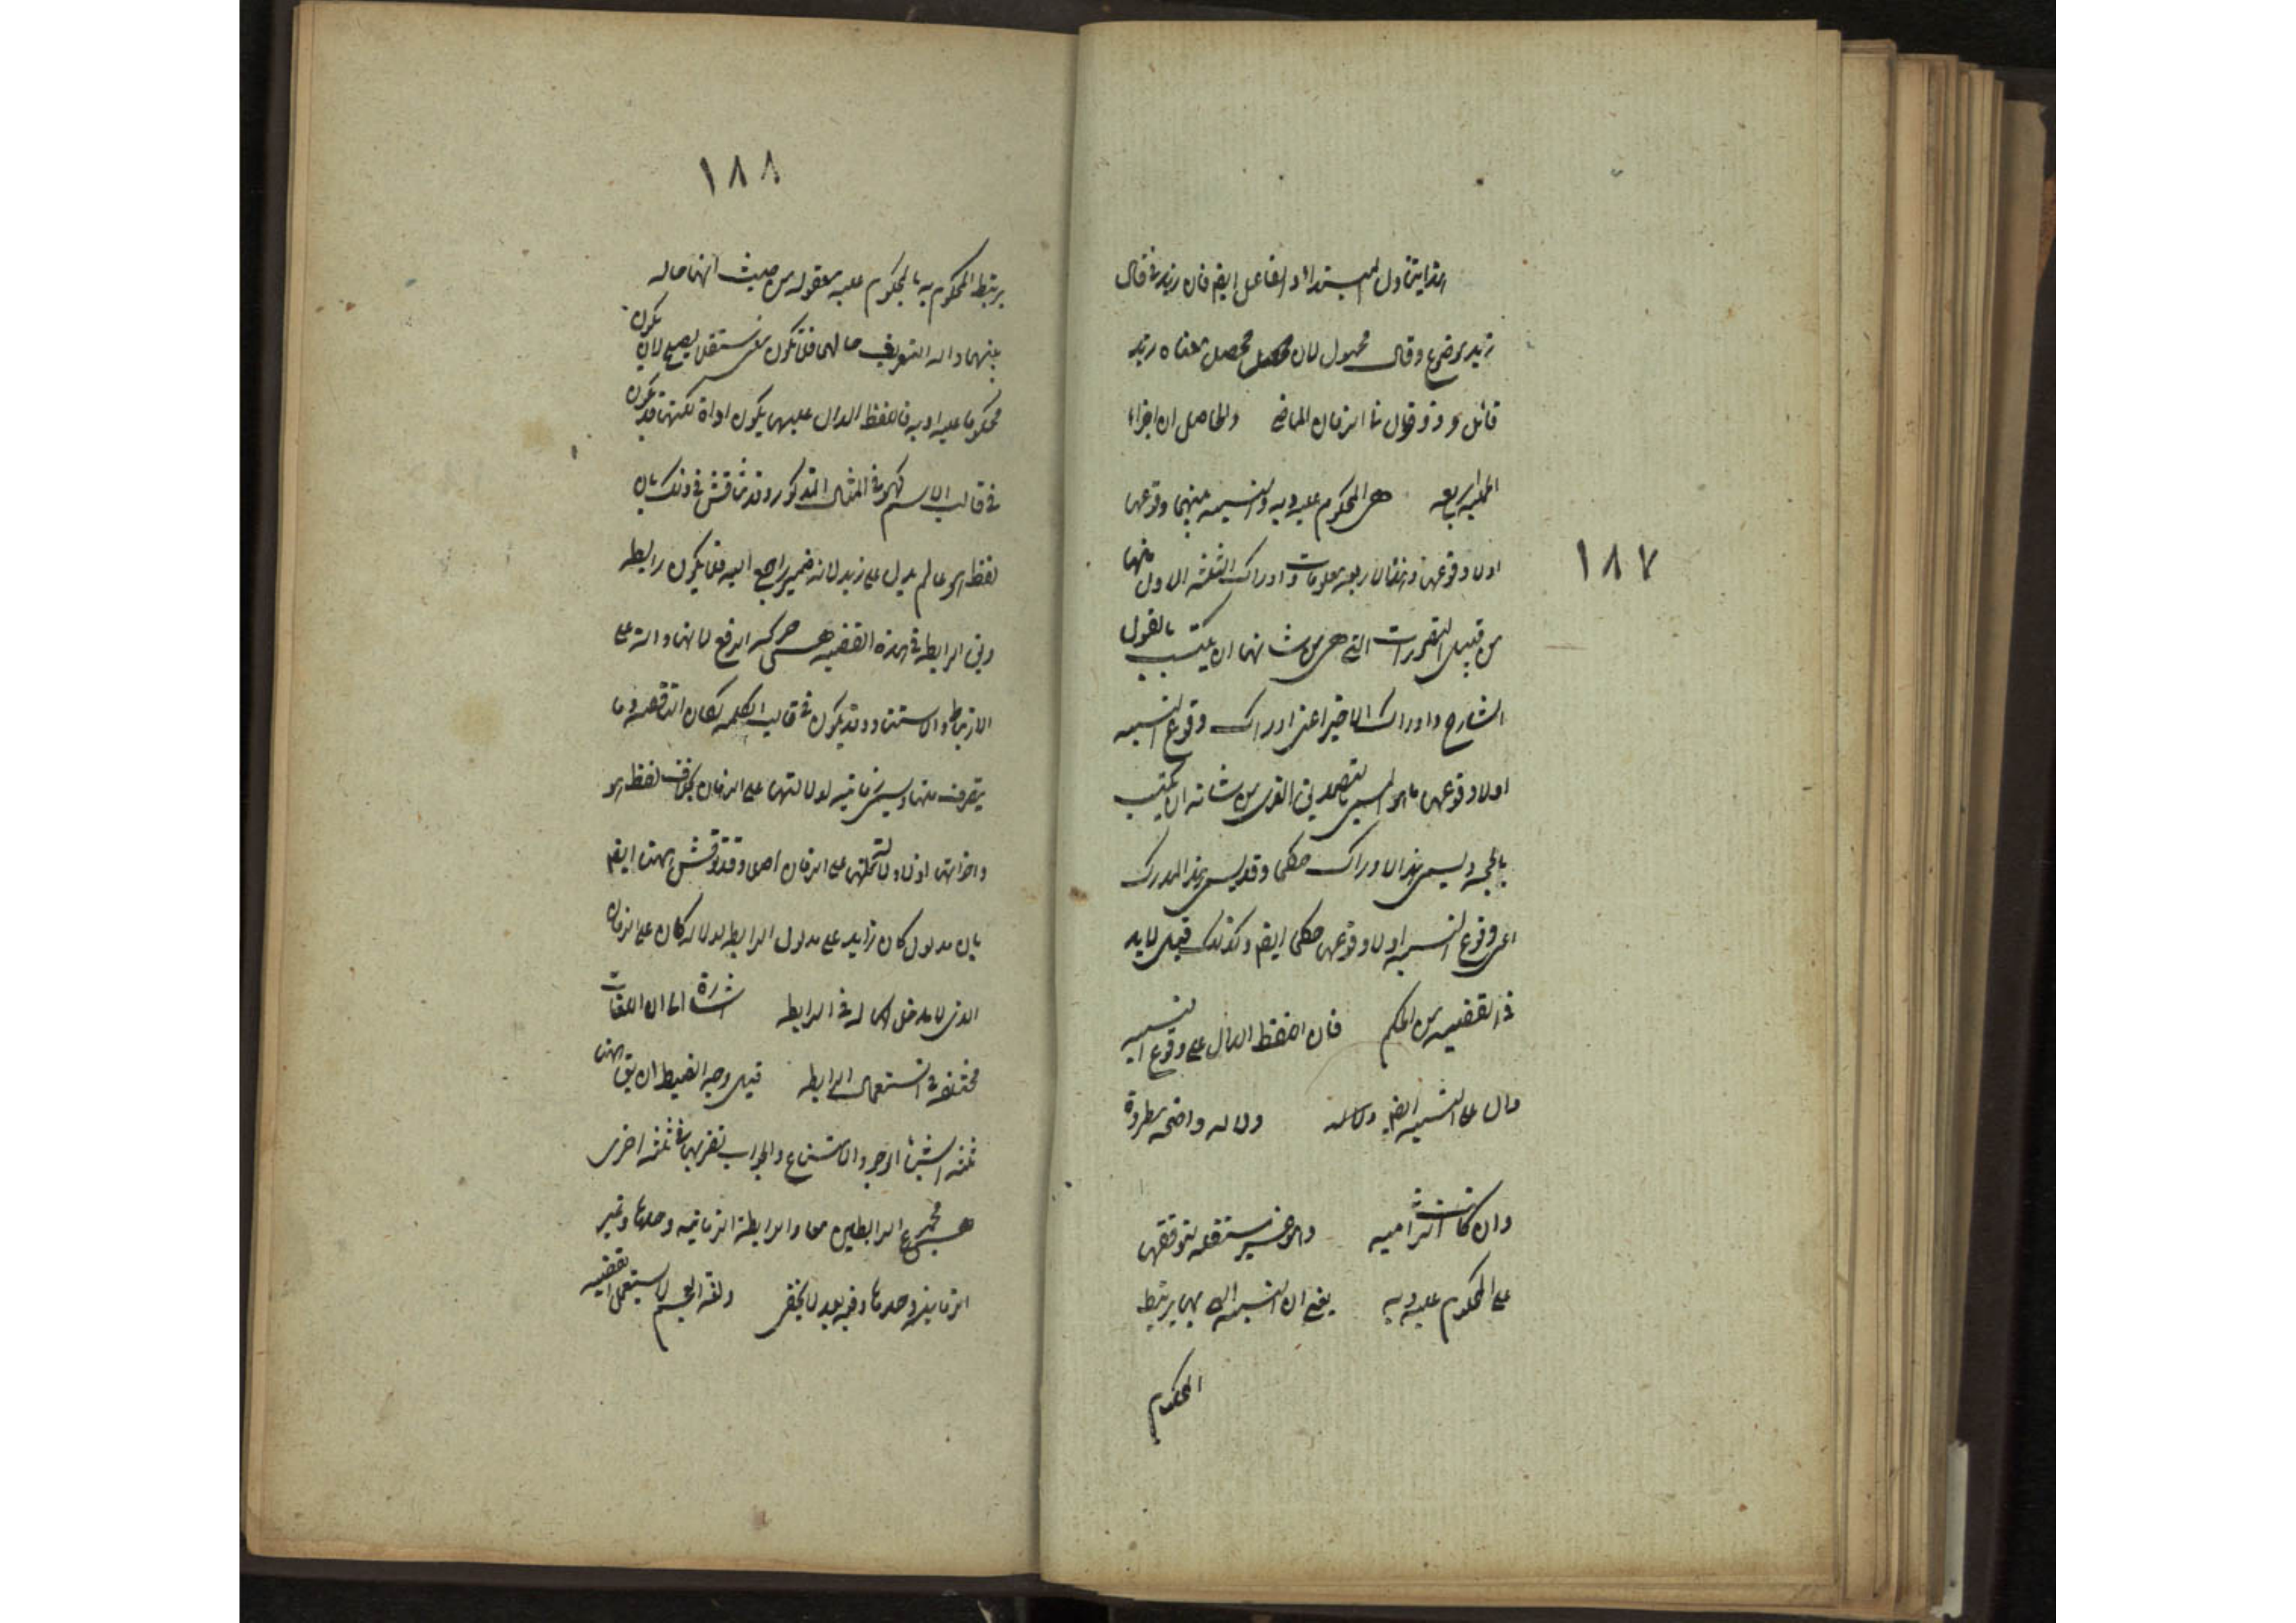 هذا يتناول المبتدأ والفاعل ايضا فان زيد في قال
زيد موضوع وقال محمول لان محصل معناه زيد
قائل في الزمان الماضي والحاصل ان اجزاء
الحملية اربعة هي المحكوم عليه وبه والنسبة بينهما وقوعها
اولا وقوعها معلومات وادراك الثلثة الاول منها
من قبيل التصورات التي هي من شانها ان يكتسب بالقول
الشارح وادراك الاخير اعنى ادراك وقوع النسبة
اولا وقوعها هو المسمى بالتصديق الذى من شانه ان يكتسب
بالحجة ويسمى هذا الادراك حكما وقد يسمى هذا المدرك
اعنى وقوع النسبة اولا وقوعها حكما ايضا ولذلك قيل لابد
في القضية من الحكم فان اللفظ الدال على وقوع النسبة
دال على النسبة ايضا دلالة واضحة مطردة
وان كانت التزامية وهو غير مستقلة لتوقفها
على المحكوم عليه وبه يعنى ان النسبة التي بها يرتبط
المحكوم
١٨٧
١٨٨
يرتبط المحكوم به بالمحكوم عليه معقولة من حيث انها حالة
بينهما والة لتعريف حالهما فلا يكون معنى مستقلا يصلح لان يكون
محكوما عليه او به فاللفظ الدال عليها يكون اداة لكنها قد يكون
في قالب الاسم كهو في المثال المذكور وقد يناقش في ذلك بان
لفظ هو عالم يدل على زيد لانه ضمير راجع اليه فلا يكون رابطة
وبان الرابطة في هذه القضية هي حركة الرفع لانها دالة على
الارتباط والاستناد وقد يكون في قالب الكلمة ككان الناقصة وما
يتصرف منها ويسمى زمانية لدلالتها على الزمان بخلاف لفظ هو
واخواتها اذ لا دلالة لها على الزمان اصلا وقد نوقش ههنا ايضا
بان مدلول كان زايد على مدلول الرابطة لدلالة كان على الزمان
الذى لا مدخل له في الرابطة اشارة الى ان اللغات
مختلفة في استعمال الرابطة قيل وجه الضبط ان يق ههنا
ثلثة اشياء الوجوب والامتناع والجواز نضربها في ثلثة اخرى
هي مجموع الرابطين معا والرابطة الزمانية وحدها وغير
الزمانية وحدها وفيه بعد لا يخفى ولغة العجم لا يستعمل القضية